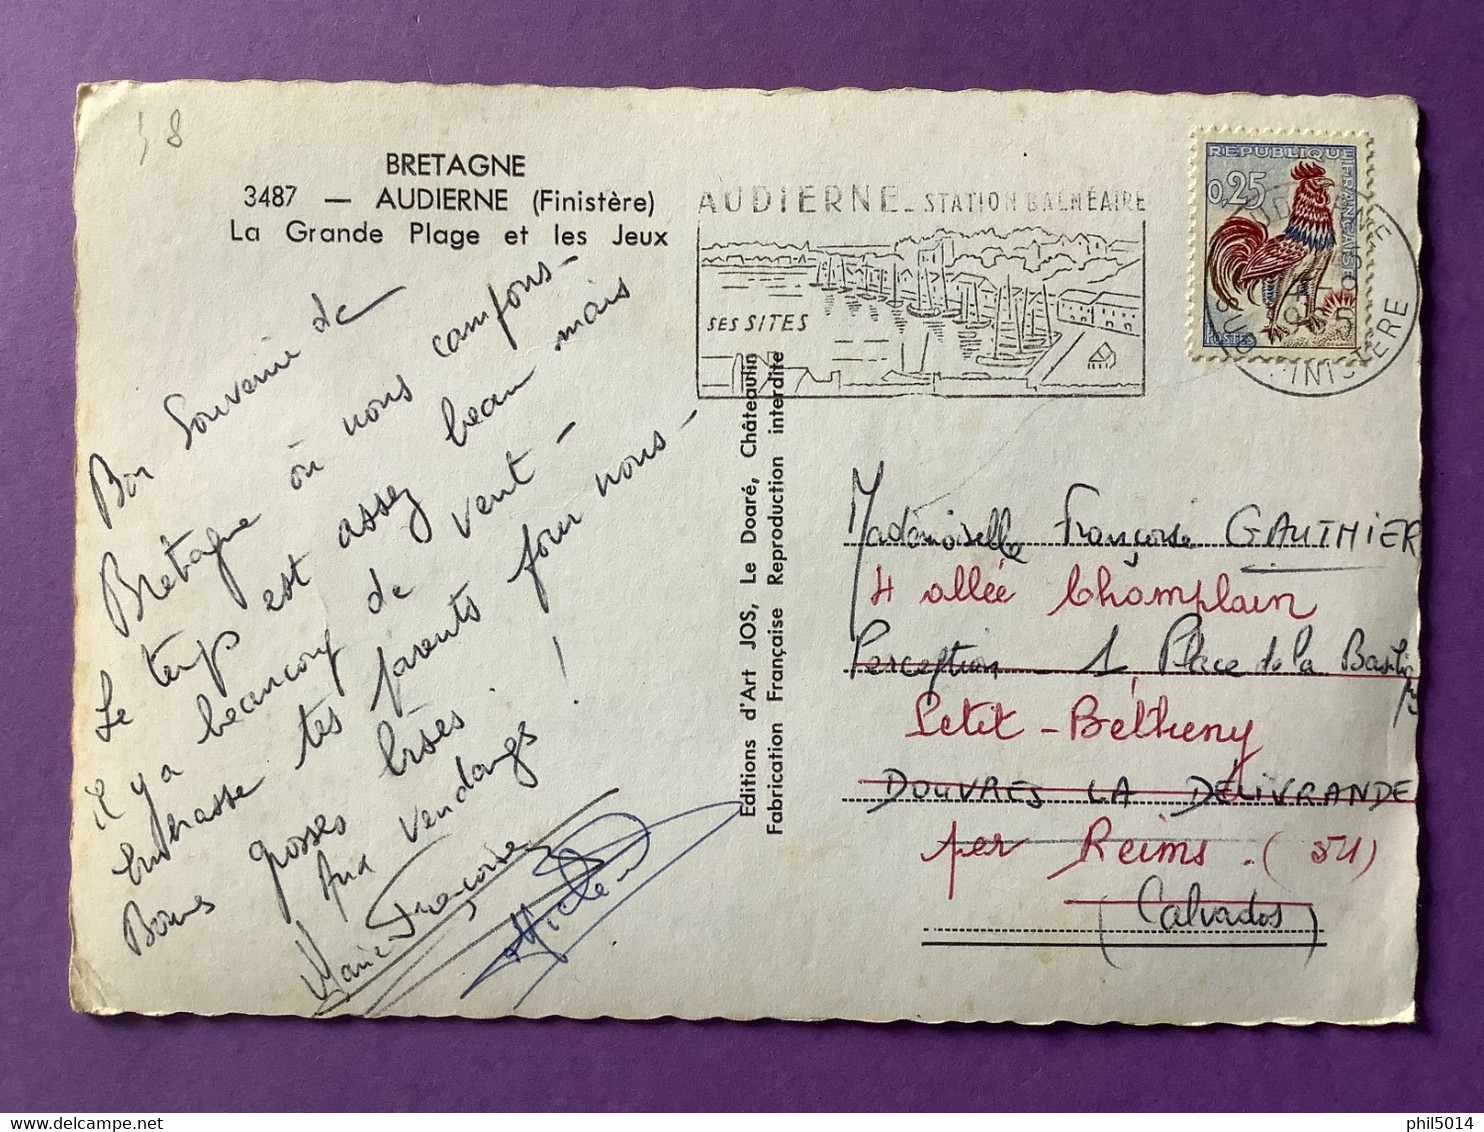 48
BRETAGNE
3487 — AUDIERNE (Finistère)
La Grande Plage et les Jeux
AUDIERNE - STATION BALNÉAIRE
SES SITES
REPUBLIQUE
FRANÇAISE
0,25
POSTES
FINISTERE
Bon Souvenir de
Bretagne où nous campons -
Le temps est assez beau mais
il y a beaucoup de vent -
Embrasse tes parents pour nous -
Bonnes grosses bises.
Aux vendanges !
Marie Françoise
Michel
Editions d'Art JOS, Le Doaré, Châteaulin
Fabrication Française Reproduction interdite
Mademoiselle Françoise GAUTHIER
4 allée Champlain
Perception - 1 Place de la Basilique
Petit-Bétheny
DOUVRES LA DÉLIVRANDE
per Reims. (51)
(Calvados)
phil5014